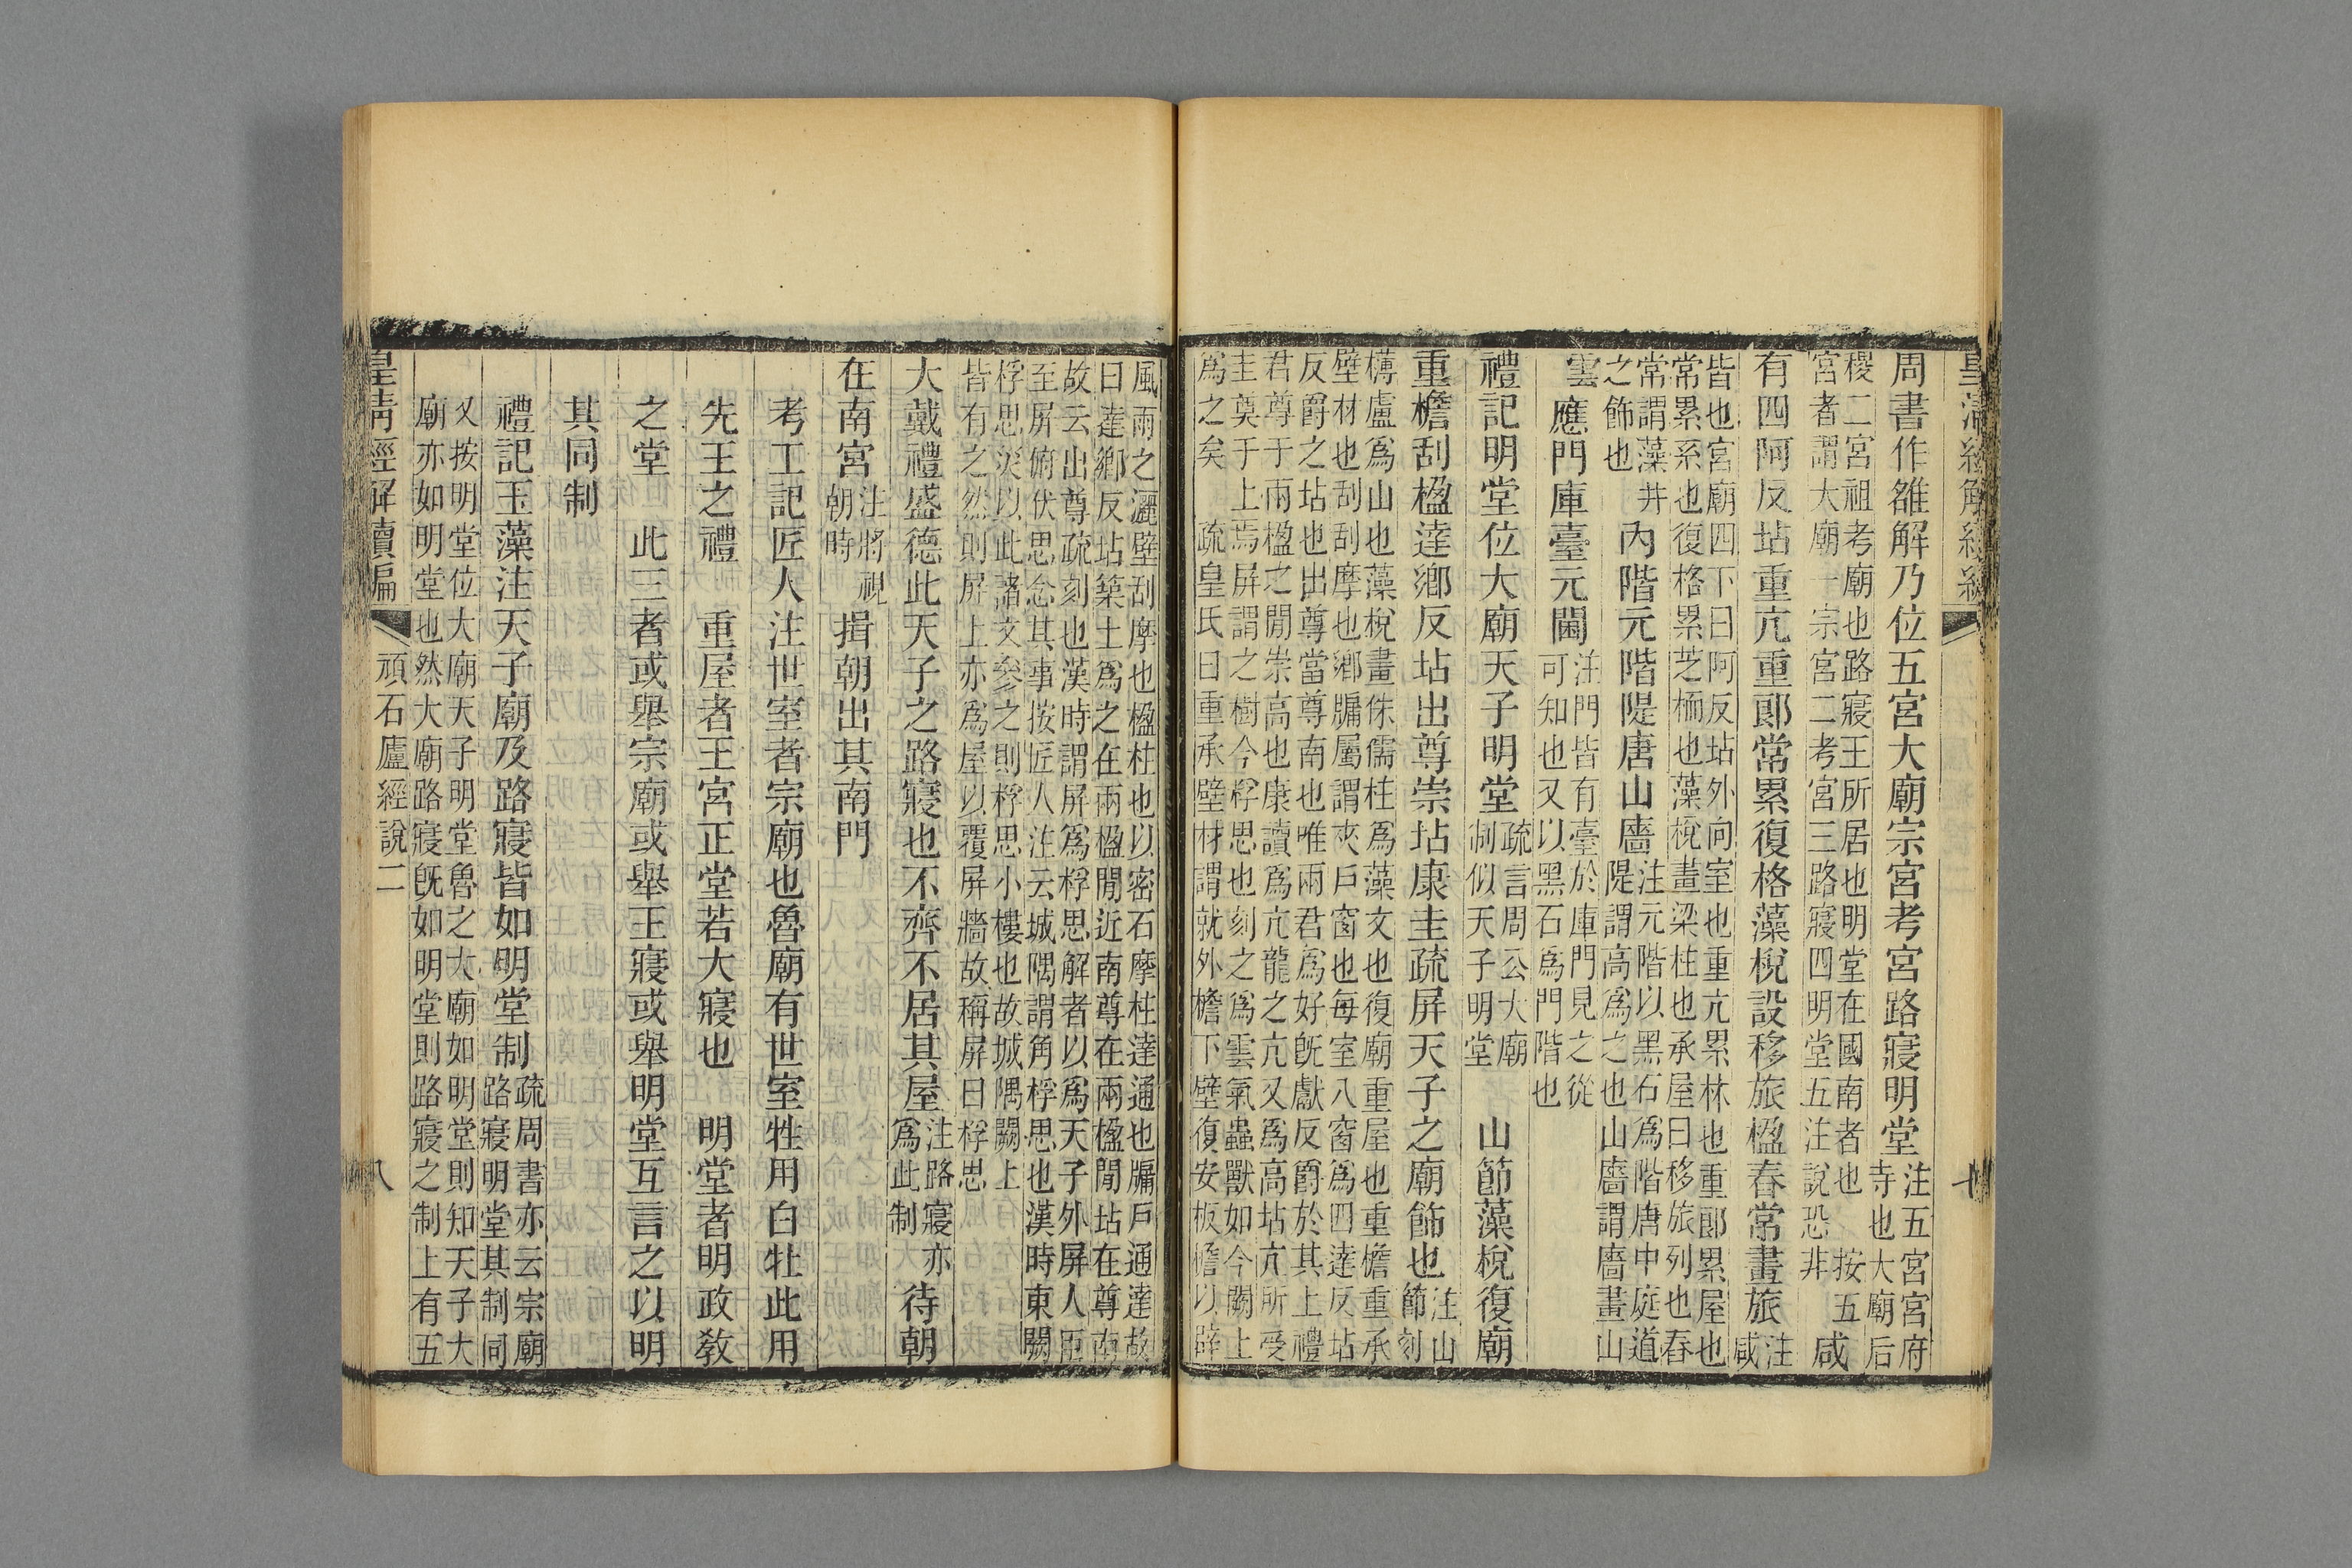 皇清經解續編
周書作雒解乃位五宮大廟宗宮考宮路寢明堂注五宮宮府寺也大廟后
稷二宮祖考廟也路寢王所居也明堂在國南者也 按五宮者謂大廟一宗宮二考宮三路寢四明堂五注說恐非咸
有四阿反坫重亢重郎常累復格藻梲設移旅楹春常畫旅注咸
皆也宮廟四下曰阿反坫外向室也重亢累林也重郎累屋也常累系也復格累芝栭也藻梲畫梁柱也承屋曰移旅列也春
常謂藻井之飾也內階元階隄唐山廧注元階以黑石爲階唐中庭道隄謂高爲之也山廧謂廧畫山
雲應門庫臺元閫注門皆有臺於庫門見之從可知也又以黑石爲門階也
禮記明堂位大廟天子明堂疏言周公大廟制似天子明堂山節藻梲復廟
重檐刮楹達鄉反坫出尊崇坫康圭疏屏天子之廟飾也注山節刻
欂盧爲山也藻梲畫侏儒柱爲藻文也復廟重屋也重檐重承壁材也刮刮摩也鄉牖屬謂夾戶窗也每室八窗爲四達反坫
反爵之坫也出尊當尊南也唯兩君爲好旣獻反爵於其上禮君尊于兩楹之閒崇高也康讀爲亢龍之亢又爲高坫亢所受
圭奠于上焉屏謂之樹今桴思也刻之爲雲氣蟲獸如今闕上爲之矣 疏皇氏曰重承壁材謂就外檐下壁復安板檐以辟
風雨之灑壁刮摩也楹柱也以密石摩柱達通也牖戶通達故曰達鄉反坫築土爲之在兩楹閒近南尊在兩楹閒坫在尊南
故云出尊疏刻也漢時謂屏爲桴思解者以爲天子外屏人臣至屏俯伏思念其事按匠人注云城隅謂角桴思也漢時東闕
桴思災以此諸文參之則桴思小樓也故城隅闕上皆有之然則屏上亦爲屋以覆屏牆故稱屏曰桴思
大戴禮盛德此天子之路寢也不齊不居其屋注路寢亦爲此制待朝
在南宮注將視朝時揖朝出其南門
考工記匠人注世室者宗廟也魯廟有世室牲用白牡此用
先王之禮 重屋者王宮正堂若大寢也 明堂者明政敎
之堂 此三者或舉宗廟或舉王寢或舉明堂互言之以明
其同制
禮記玉藻注天子廟及路寢皆如明堂制疏周書亦云宗廟路寢明堂其制同
又按明堂位大廟天子明堂魯之大廟如明堂則知天子大廟亦如明堂也然大廟路寢旣如明堂則路寢之制上有五
皇清經解續編 頑石廬經說二 八